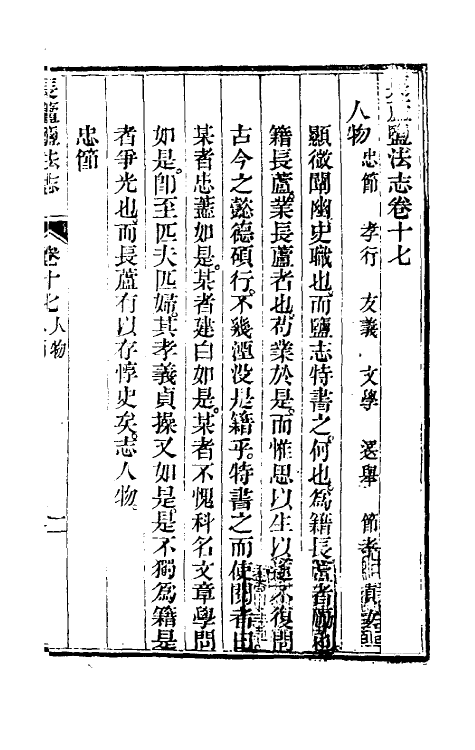 長蘆鹽法志卷十七
人物 忠節 孝行 友義 文學 選舉 節孝
顯微闡幽史職也而鹽志特書之何也為籍長蘆者
籍長蘆業長蘆者也苟業於是而惟思以生以遂不復問
古今之懿德碩行不幾湮没是籍乎特書之而使閱者曰
某者忠藎如是某者建白如是某者不愧科名文章學問
如是即至匹夫匹婦其孝義貞操又如是是不獨為籍是
者爭光也而長蘆有以存惇史矣志人物
忠節
長蘆鹽法志
卷十七人物